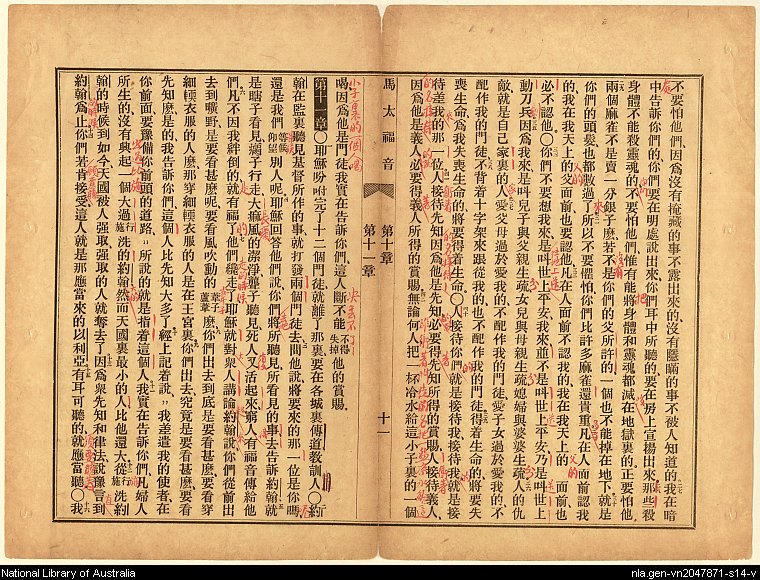 不要怕他們、因爲沒有掩藏的事不露出來的、沒有隱瞞的事不被人知道的、我在暗
中告訴你們的、你們要在明處說出來、你們耳中所聽的、要在房上宣揚出來、那些殺
身體不能殺靈魂的、不要怕他們、惟有能將身體和靈魂都滅在地獄裏的、正要怕他、
兩個麻雀不是賣一分銀子麽、若不是你們的父所許的、一個也不能掉在地下、就是
你們的頭髮也都數過了、所以不要懼怕、你們比許多麻雀還貴重、凡在人面前認我
的、我在我天上的父面前也要認他、凡在人面前不認我的、我在我天上的父面前也
必不認他、〇你們不要想我來是叫世上平安、我來並不是叫世上平安、乃是叫世上
動刀兵、因爲我來是叫兒子與父親生疏、女兒與母親生疏、媳婦與婆婆生疏、人的仇
敵就是自己家裏的人、愛父母過於愛我的、不配作我的門徒、愛子女過於愛我的、不
配作我的門徒、不背着十字架來跟從我的、也不配作我的門徒、得着生命的、將要失
喪生命、爲我失喪生命的、將要得着生命、〇人接待你們、就是接待我、接待我、就是接
待差我的那一位、人接待先知、因爲他是先知、必要得先知所得的賞賜、人接待義人、
因爲他是義人、必要得義人所得的賞賜、無論何人把一杯冷水給這小子裏的一個
馬太福音 第十章 第十一章 十一
小子裏的一個喝
喝、因爲他是門徒、我實在告訴你們、這人斷不能不得失掉他的賞賜、
第十一章〇耶穌吩咐完了十二個門徒、就離了那裏、要在各城裏傳道教訓人、〇約
翰在監裏聽見基督所作的事、就打發兩個門徒去、問他說、將要來的那一位是你嗎、
還是我們等候仰望別人呢、耶穌回答他們說、你們將所聽見所看見的事去告訴約翰、就
是瞎子看見、瘸子行走、大痲瘋的潔淨、聾子聽見、死人又活起來、窮人有福音傳給他
們、凡不因我絆倒的、就有福了、他們纔走、耶穌就對衆人講論約翰說、你們從前出
去到曠野、是要看甚麽呢、要看風吹動的葦子蘆葦麽、你們出去到底是要看甚麽、要看穿
細輭衣服的人麽、那穿細輭衣服的人是在王宮裏、你們出去究竟是要看甚麽、要看
先知麽、是的、我告訴你們、這個人比先知大多了、經上記着說、我差遣我的使者在
你前面、要豫備你前頭的道路、所說的就是指着這個人、我實在告訴你們、凡婦人
所生的、沒有興起一個大過行施洗的約翰、然而天國裏最小的人比他還大、從行施洗約
翰的時候到如今、天國被人强取、强取的人就奪去了、因爲衆先知和律法說豫言到
約翰爲止、你們若肯接受、這人就是那應當來的以利亞、有耳可聽的、就應當聽、〇我
National Library of Australia
nla.gen-vn2047871-s14-v